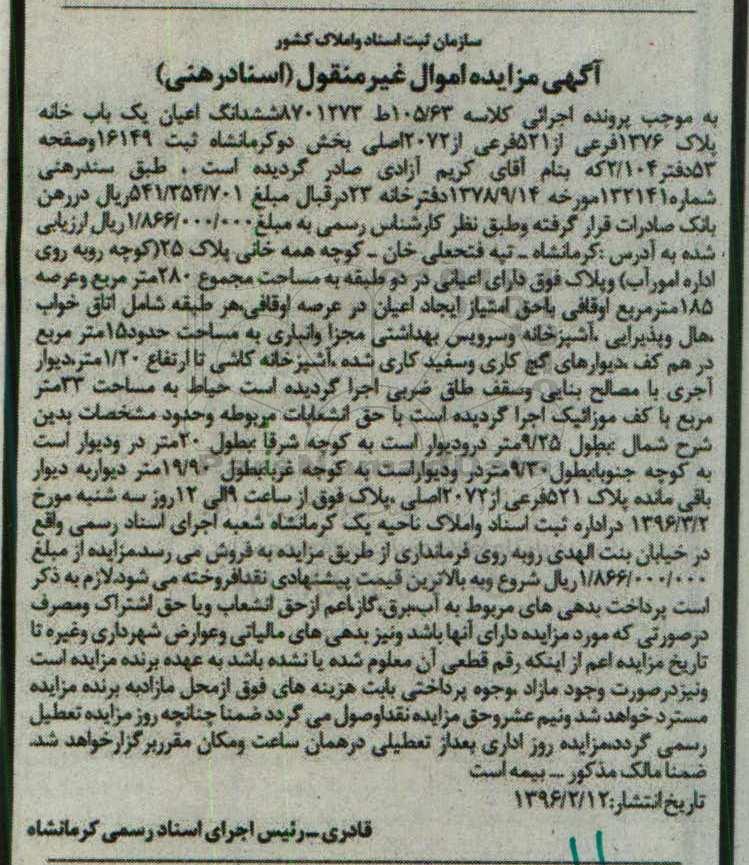 سازمان ثبت اسناد واملاک کشور
آگهی مزایده اموال غیرمنقول (اسنادرهنی)
به موجب پرونده اجرائی کلاسه ۱۰۵/۶۳ط ۸۷۰۱۲۷۳ششدانگ اعیان یک باب خانه
پلاک ۱۳۷۶فرعی از۵۲۱فرعی از۲۰۷۲اصلی بخش دوکرمانشاه ثبت ۱۶۱۴۹وصفحه
۵۳دفتر۲/۱۰۴که بنام آقای کریم آزادی صادر گردیده است . طبق سندرهنی
شماره۱۳۲۱۴۱مورخه ۱۳۷۸/۹/۱۴دفترخانه ۲۳درقبال مبلغ ۵۴۱/۳۵۴/۷۰۱ریال دررهن
بانک صادرات قرار گرفته وطبق نظر کارشناس رسمی به مبلغ۱/۸۶۶/۰۰۰/۰۰۰ریال ارزیابی
شده به آدرس :کرمانشاه ـ تپه فتحعلی خان ـ کوچه همه خانی پلاک ۲۵(کوچه روبه روی
اداره امورآب) وپلاک فوق دارای اعیانی در دو طبقه به مساحت مجموع ۲۸۰متر مربع وعرصه
۱۸۵مترمربع اوقافی باحق امتیاز ایجاد اعیان در عرصه اوقافی،هر طبقه شامل اتاق خواب
،هال وپذیرایی ،آشپزخانه وسرویس بهداشتی مجزا وانباری به مساحت حدود۱۵متر مربع
در هم کف ،دیوارهای گچ کاری وسفید کاری شده ،آشپزخانه کاشی تا ارتفاع ۱/۲۰متر،دیوار
آجری با مصالح بنایی وسقف طاق ضربی اجرا گردیده است حیاط به مساحت ۳۳متر
مربع با کف موزائیک اجرا گردیده است با حق انشعابات مربوطه وحدود مشخصات بدین
شرح شمال :بطول ۹/۲۵متر درودیوار است به کوچه شرقا :بطول ۲۰متر در ودیوار است
به کوچه جنوبا:بطول۹/۳۰متردر ودیواراست به کوچه غربا:بطول ۱۹/۹۰متر دیواربه دیوار
باقی مانده پلاک ۵۲۱فرعی از۲۰۷۲اصلی ،پلاک فوق از ساعت ۹الی ۱۲روز سه شنبه مورخ
۱۳۹۶/۳/۲ دراداره ثبت اسناد واملاک ناحیه یک کرمانشاه شعبه اجرای اسناد رسمی واقع
در خیابان بنت الهدی روبه روی فرمانداری از طریق مزایده به فروش می رسد.مزایده از مبلغ
۱/۸۶۶/۰۰۰/۰۰۰ریال شروع وبه بالاترین قیمت پیشنهادی نقدافروخته می شود.لازم به ذکر
است پرداخت بدهی های مربوط به آب،برق،گاز،اعم ازحق انشعاب ویا حق اشتراک ومصرف
درصورتی که مورد مزایده دارای آنها باشد ونیز بدهی های مالیاتی وعوارض شهرداری وغیره تا
تاریخ مزایده اعم از اینکه رقم قطعی آن معلوم شده یا نشده باشد به عهده برنده مزایده است
ونیزدرصورت وجود مازاد ،وجوه پرداختی بابت هزینه های فوق ازمحل مازادبه برنده مزایده
مسترد خواهد شد ونیم عشروحق مزایده نقداوصول می گردد ضمنا چنانچه روز مزایده تعطیل
رسمی گردد،مزایده روز اداری بعداز تعطیلی درهمان ساعت ومکان مقرربرگزارخواهد شد.
ضمنا مالک مذکور ... بیمه است
تاریخ انتشار:۱۳۹۶/۲/۱۲
قادری ـ رئیس اجرای اسناد رسمی کرمانشاه
۱۱